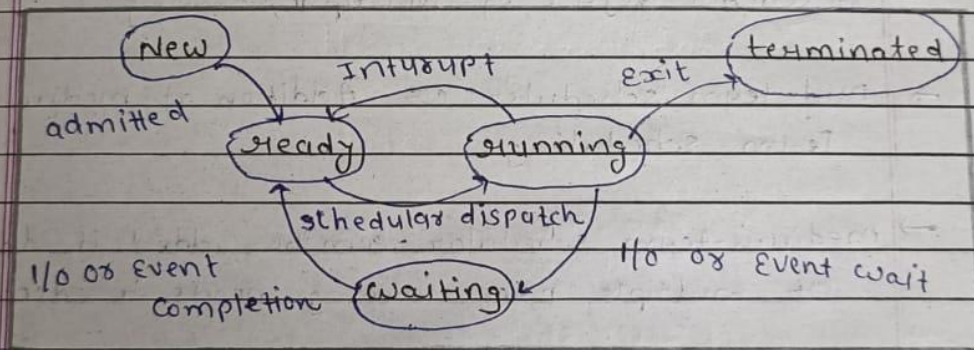 New
terminated
Inturupt
Exit
admitted
ready
running
schedular dispatch
I/O or Event
completion
waiting
I/O or Event wait